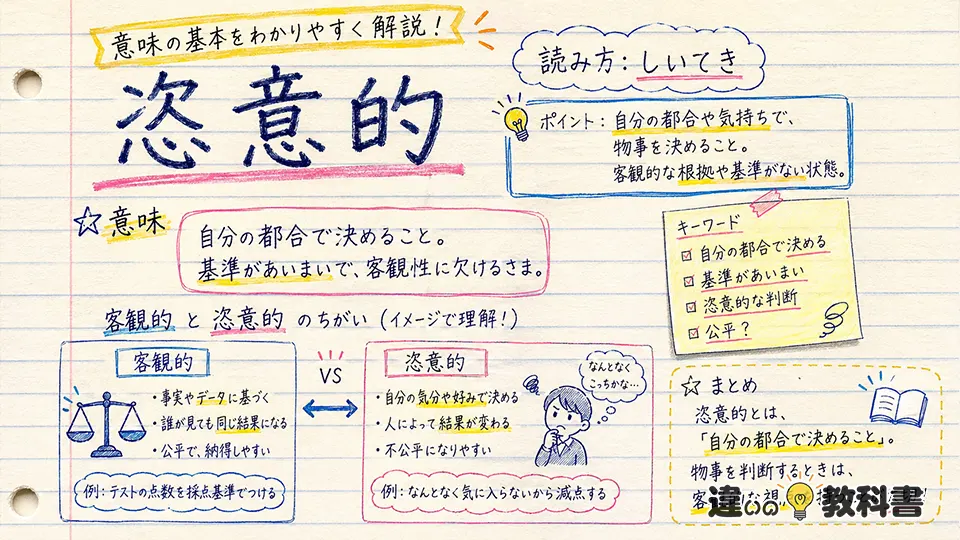 意味の基本をわかりやすく解説！
恣意的
読み方：しいてき
ポイント：自分の都合や気持ちで、
物事を決めること。
客観的な根拠や基準がない状態。
☆意味
自分の都合で決めること。
基準があいまいで、客観性に欠けるさま。
キーワード
☑自分の都合で決める
☑基準があいまい
☑恣意的な判断
☑公平？
客観的と恣意的のちがい（イメージで理解！）
客観的
・事実やデータに基づく
・誰が見ても同じ結果になる
・公平で、納得しやすい
例：テストの点数を採点基準でつける
VS
恣意的
・自分の気分や好みで決める
・人によって結果が変わる
・不公平になりやすい
なんとなく
こっちかな…
例：なんとなく気に入らないから減点する
☆まとめ
恣意的とは、
「自分の都合で決めること」。
物事を判断するときは、
客
な視
違いの教科書